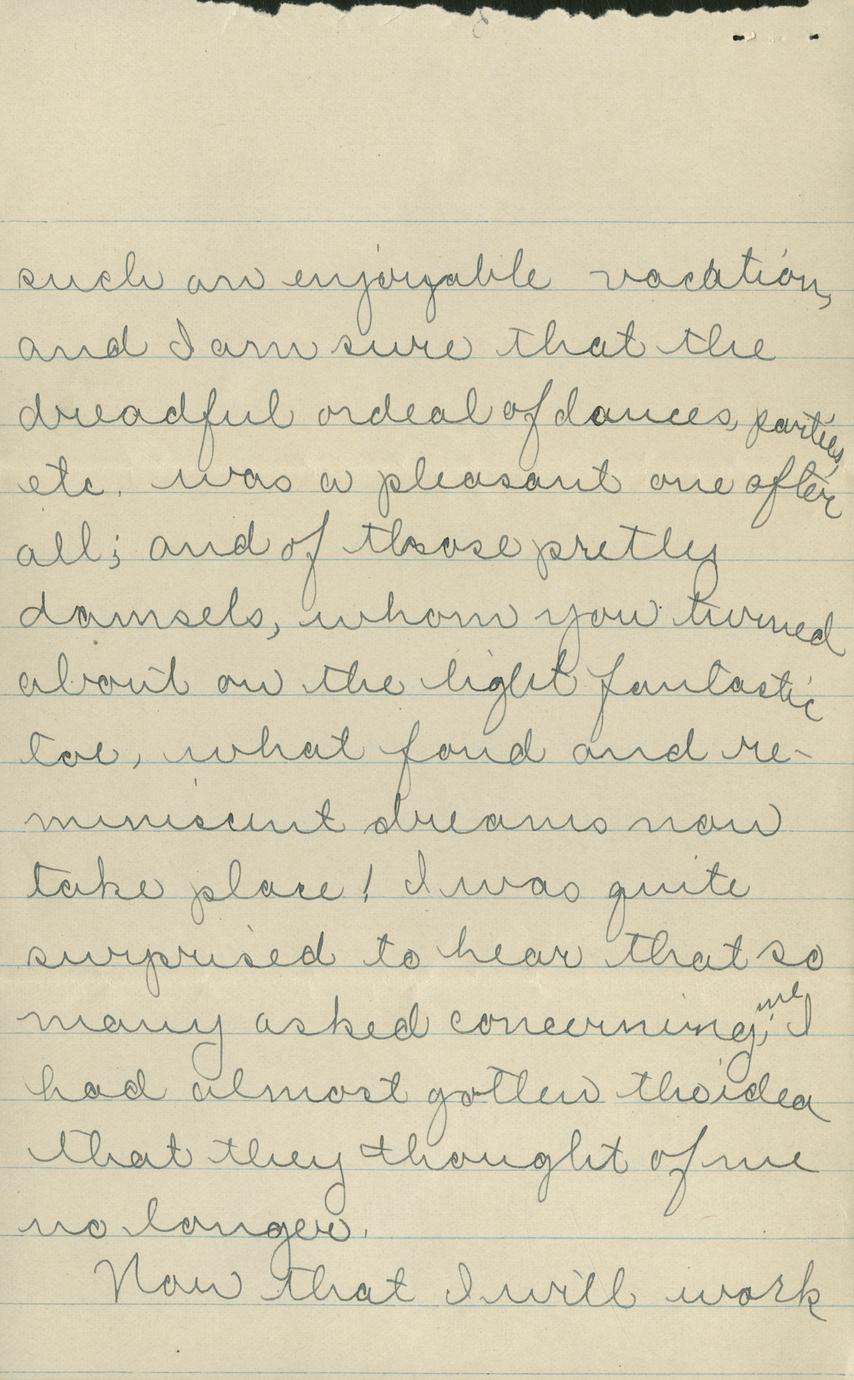 such an enjoyable vacation,
and I am sure that the
dreadful ordeal of dances, parties,
etc. was a pleasant one after
all; and of those pretty
damsels, whom you turned
about on the light fantastic
toe, what fond and re-
miniscent dreams now
take place! I was quite
surprised to hear that so
many asked concerning me; I
had almost gotten the idea
that they thought of me
no longer.
Now that I will work